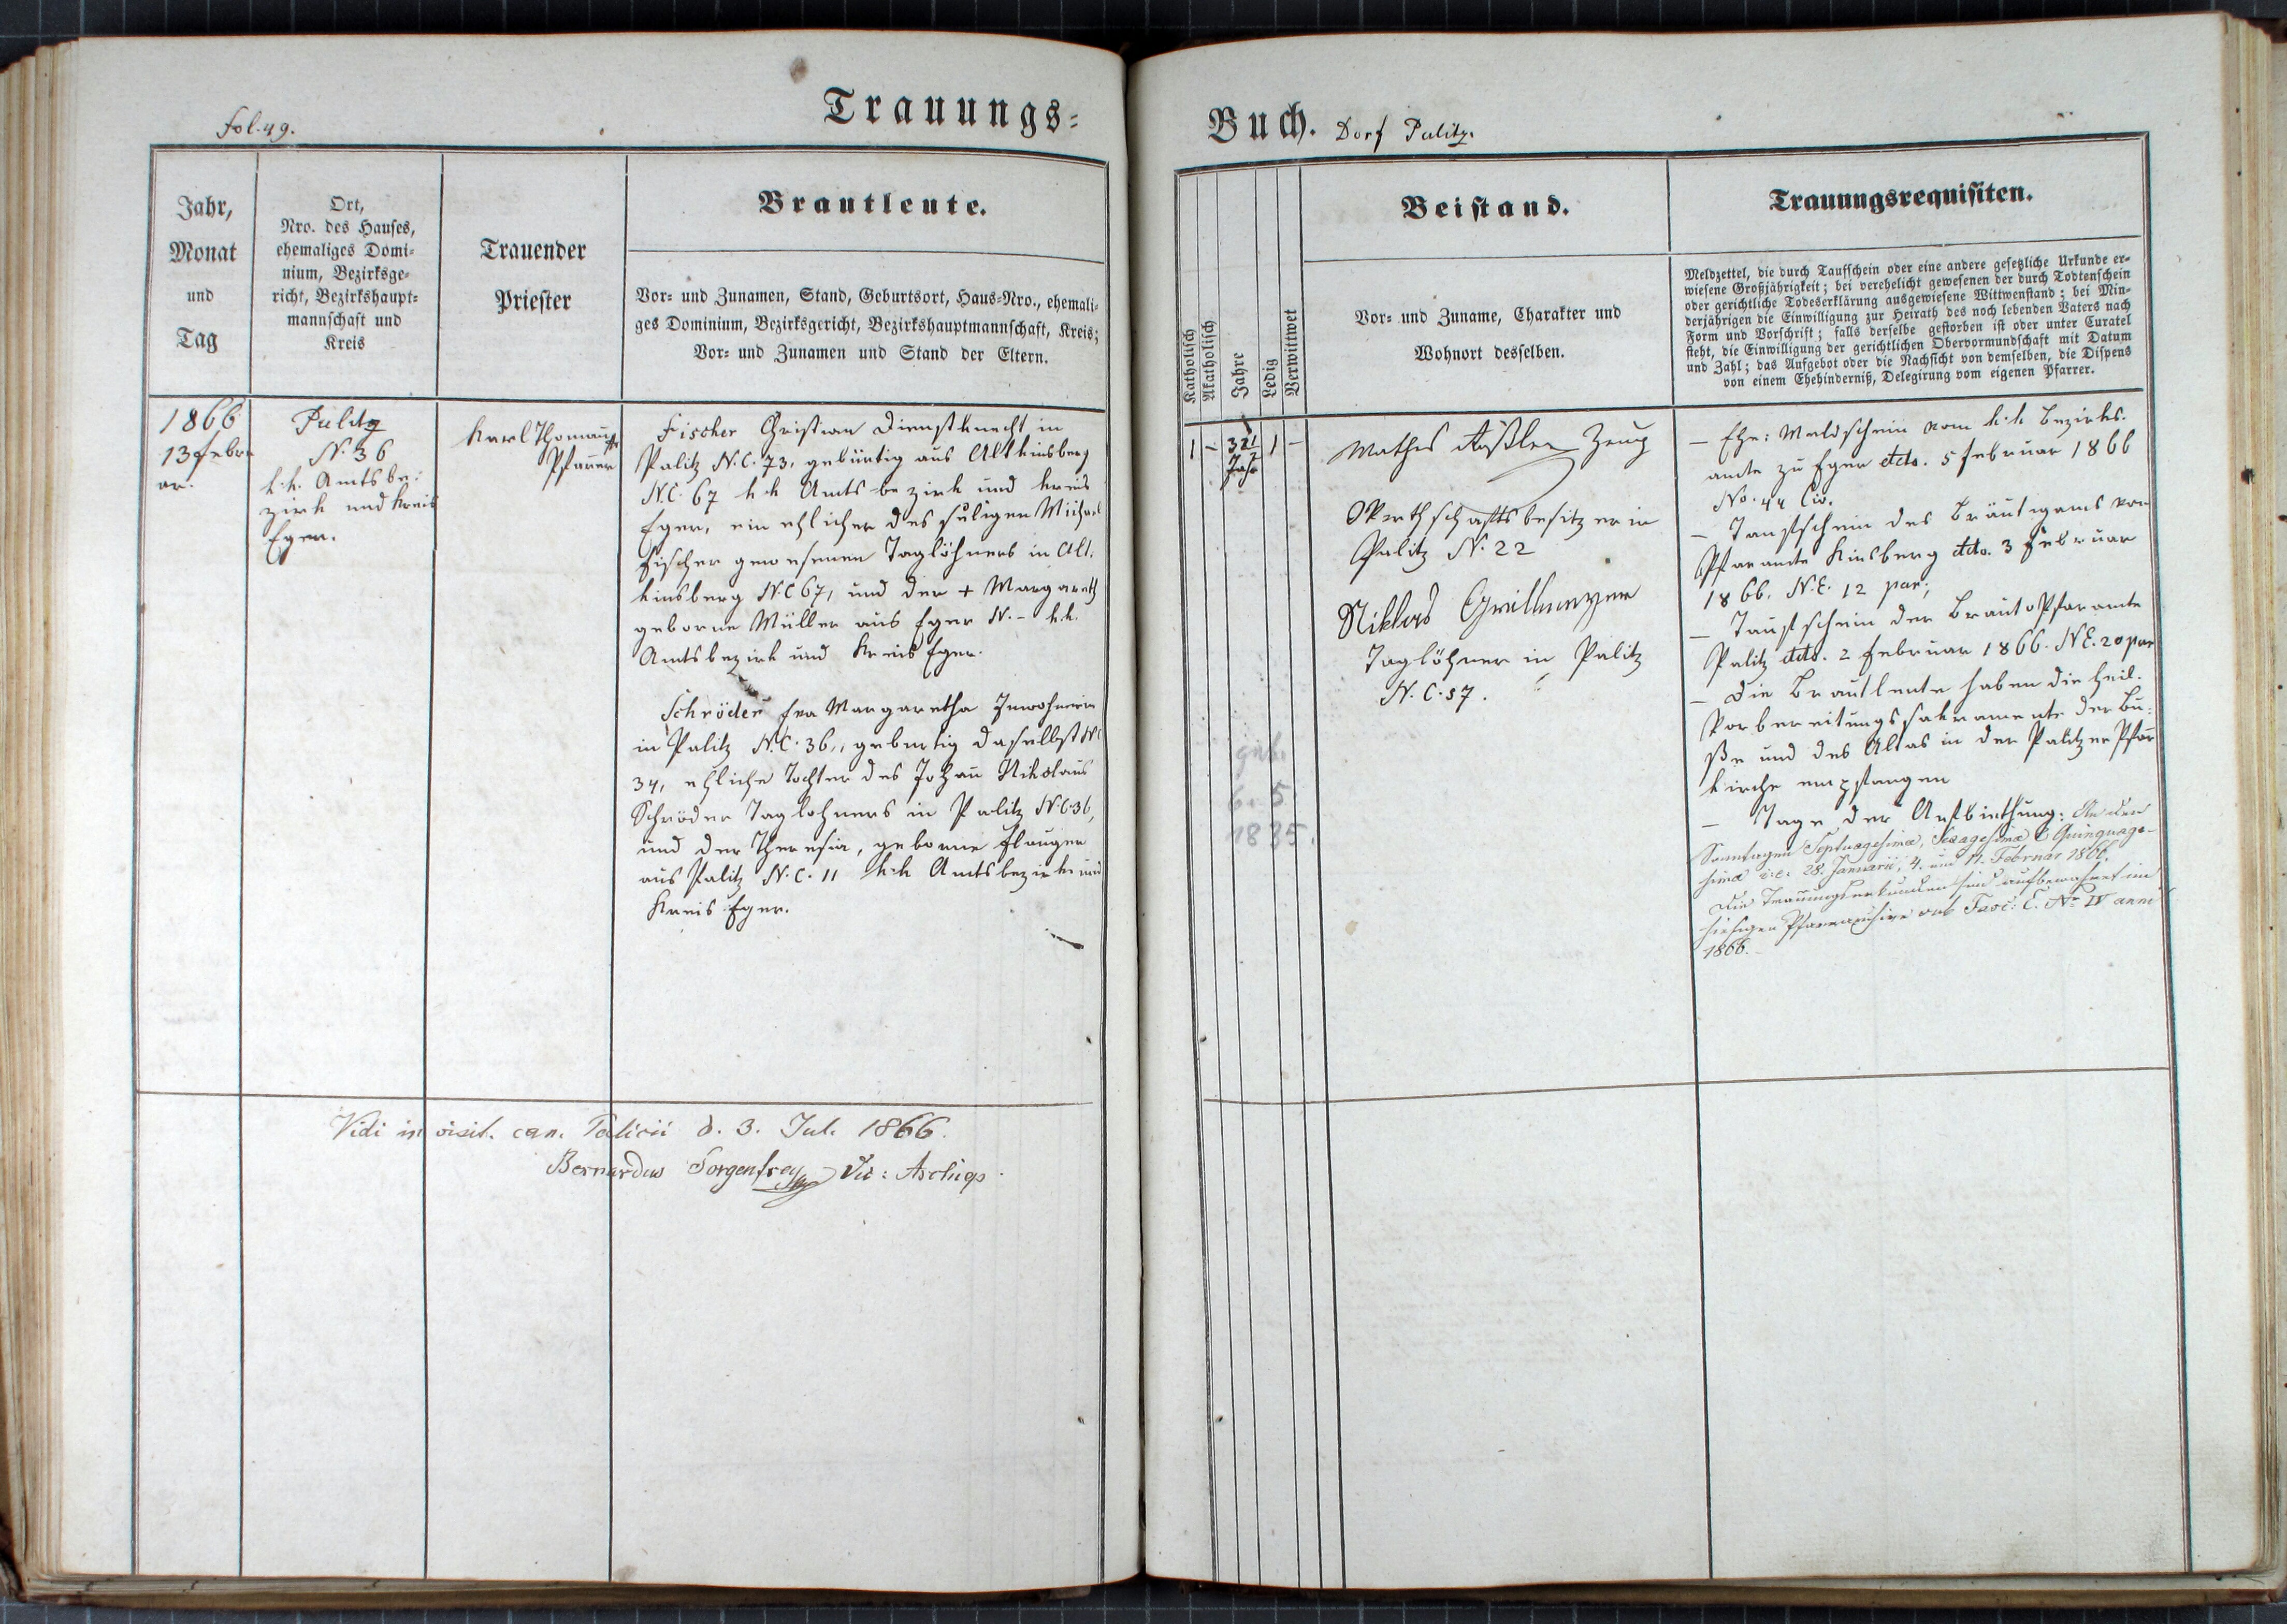 fol. 49.
Trauungs=
Jahr,
Monat
und
Tag
Ort,
Nro. des Hauses,
ehemaliges Domi=
nium, Bezirksge=
richt, Bezirkshaupt=
mannschaft und
Kreis
Trauender
Priester
Brautleute.
Vor= und Zunamen, Stand, Geburtsort, Haus=Nro., ehemali=
ges Dominium, Bezirksgericht, Bezirkshauptmannschaft, Kreis;
Vor= und Zunamen und Stand der Eltern.
1866
13 Febru
ar.
Palitz
N. 36
k.k. Amtsbe:
zirk und Kreis
Eger.
Karl
Pfarrer
Fischer Christian Dienstknecht in
Palitz N.C. 73, gebürtig aus Altkinsberg
N.C. 67 k.k Amtsbezirk und Kreis
Eger, ein ehlicher des seligen Michael
Fischer gewesenen Taglöhners in Alt:
kinsberg N.C 67, und der + Margareth
geborne Müller aus Eger N. – k.k.
Amtsbezirk und Kreis Eger.
Schröder Eva Margaretha Inwohnerin
in Palitz N.C. 36, gebürtig daselbst NC
34, ehliche Tochter des Johann Nikolaus
Schröder Taglöhners in Palitz N.C. 36,
und der Theresia, geborne
aus Palitz N.C. 11 k.k Amtsbezirk und
Kreis Eger.
Vidi in visit. can. Palicii d. 3. Jul. 1866.
Bernardus Sorgenfrey Vic: Archiep.
Buch. Dorf Palitz.
Katholisch
Akatholisch
Jahre
Ledig
Verwittwet
Beistand.
Vor= und Zuname, Charakter und
Wohnort desselben.
Trauungsrequisiten.
Meldzettel, die durch Taufschein oder eine andere gesetzliche Urkunde er=
wiesene Großjährigkeit; bei verehelicht gewesenen der durch Todtenschein
oder gerichtliche Todeserklärung ausgewiesene Wittwenstand; bei Min=
derjährigen die Einwilligung zur Heirath des noch lebenden Vaters nach
Form und Vorschrift; falls derselbe gestorben ist oder unter Curatel
steht, die Einwilligung der gerichtlichen Obervormundschaft mit Datum
und Zahl; das Aufgebot oder die Nachsicht von demselben, die Dispens
von einem Ehehinderniß, Delegirung vom eigenen Pfarrer.
1 – 32 1 –
Jahr
geb.
6. 5.
1835.
Mathes Zeug
Wirthschaftsbesitzer in
Palitz N. 22
Niklas Grillmeyer
Taglöhner in Palitz
N.C. 57.
– Ehe: Meldschein vom k.k Bezirks.
amte zu Eger ddto. 5 Februar 1866
No. 44 Civ.
– Taufschein des Bräutigams vom
Pfarramte Kinsberg ddto. 3 Februar
1866. N.E. 12 par;
– Taufschein der Braut Pfarramte
Palitz ddto. 2 Februar 1866. N.E. 20 par
– Die Brautleute haben die heil.
Vorbereitungssakramente der Bu:
ße und des Altars in der Palitzer Pfarr
kirche empfangen
– Tage der Aufbiethung: An den
Sonntagen Septuagesima, Sexagesima & Quinquage-
sima i.e. 28. Januarii, 4. und 11. Februar 1866.
Die Trauungsurkunden sind aufbewahret im
hiesigen Pfarrarchive sub Fasc: C. Nr IV anni
1866.